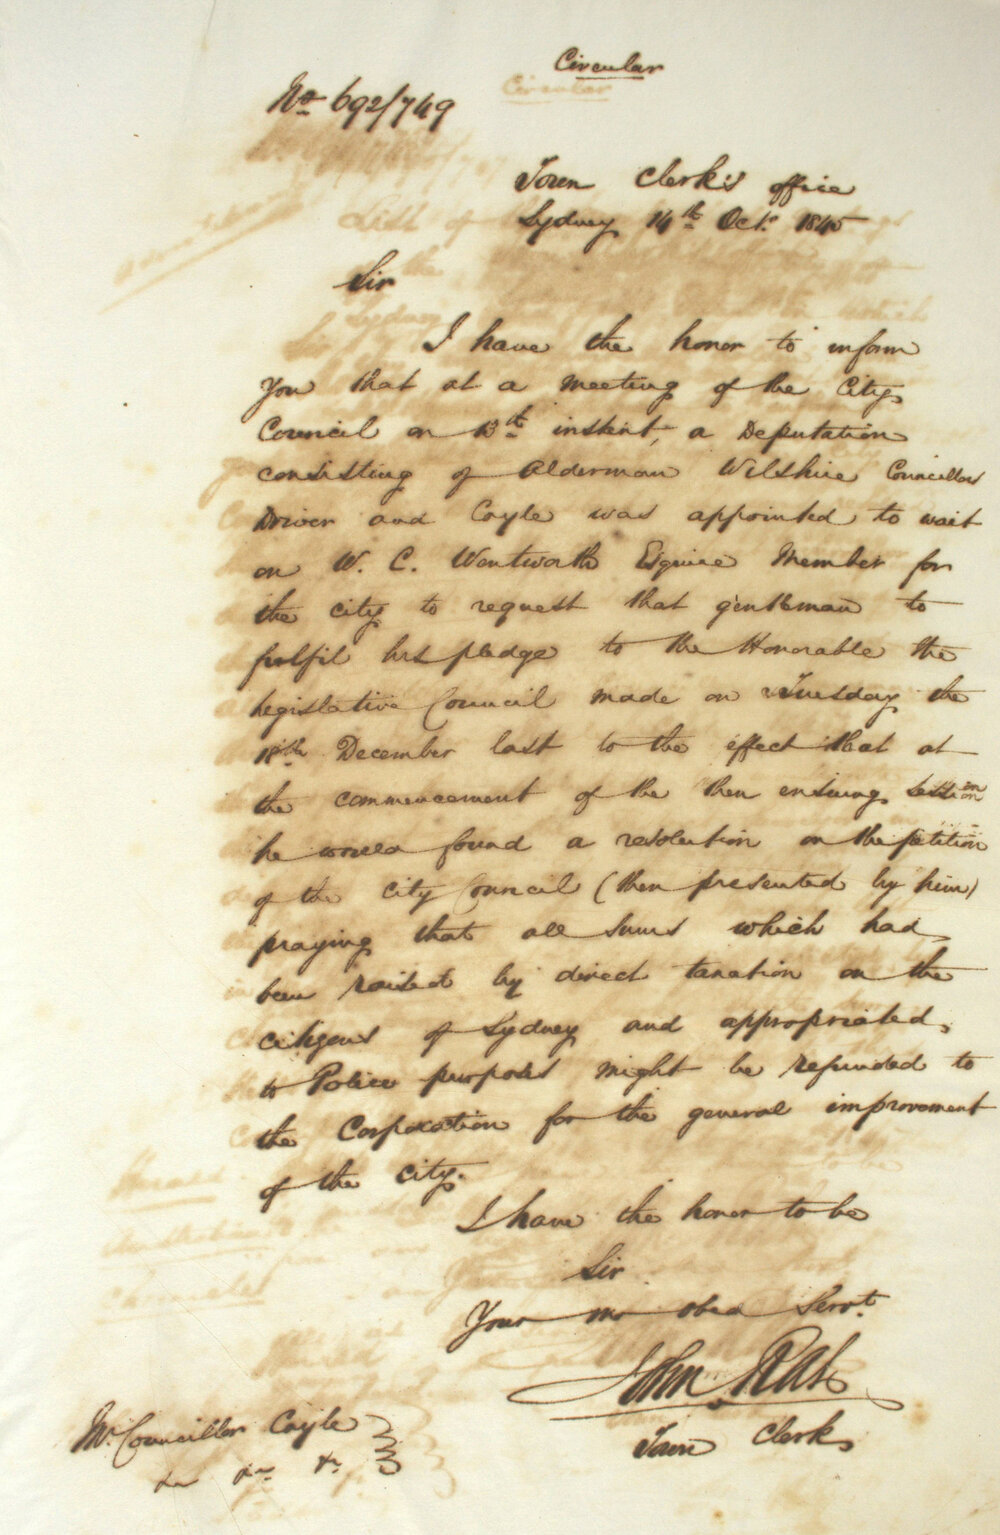 Circular
No 692/749
Town Clerk's office
Sydney 14th Octr. 1845
Sir
I have the honor to inform
you that at a meeting of the City
Council on 13th instant, a Deputation
consisting of Alderman Wilshire Councillors
Driver and Coyle was appointed to wait
on W. C. Wentworth Esquire Member for
the city to request that gentleman to
fulfil his pledge to the Honorable the
Legislative Council made on Tuesday the
18th December last to the effect that at
the commencement of the then ensuing session
he would found a resolution on the petition
of the City Council (then presented by him)
praying that all sums which had
been raised by direct taxation on the
citizens of Sydney and appropriated
to Police purposes might be refunded to
the Corporation for the general improvement
of the city.
I have the honor to be
Sir
Your mo obed Servt.
John Rae
Town Clerk
Mr. Councillor Coyle